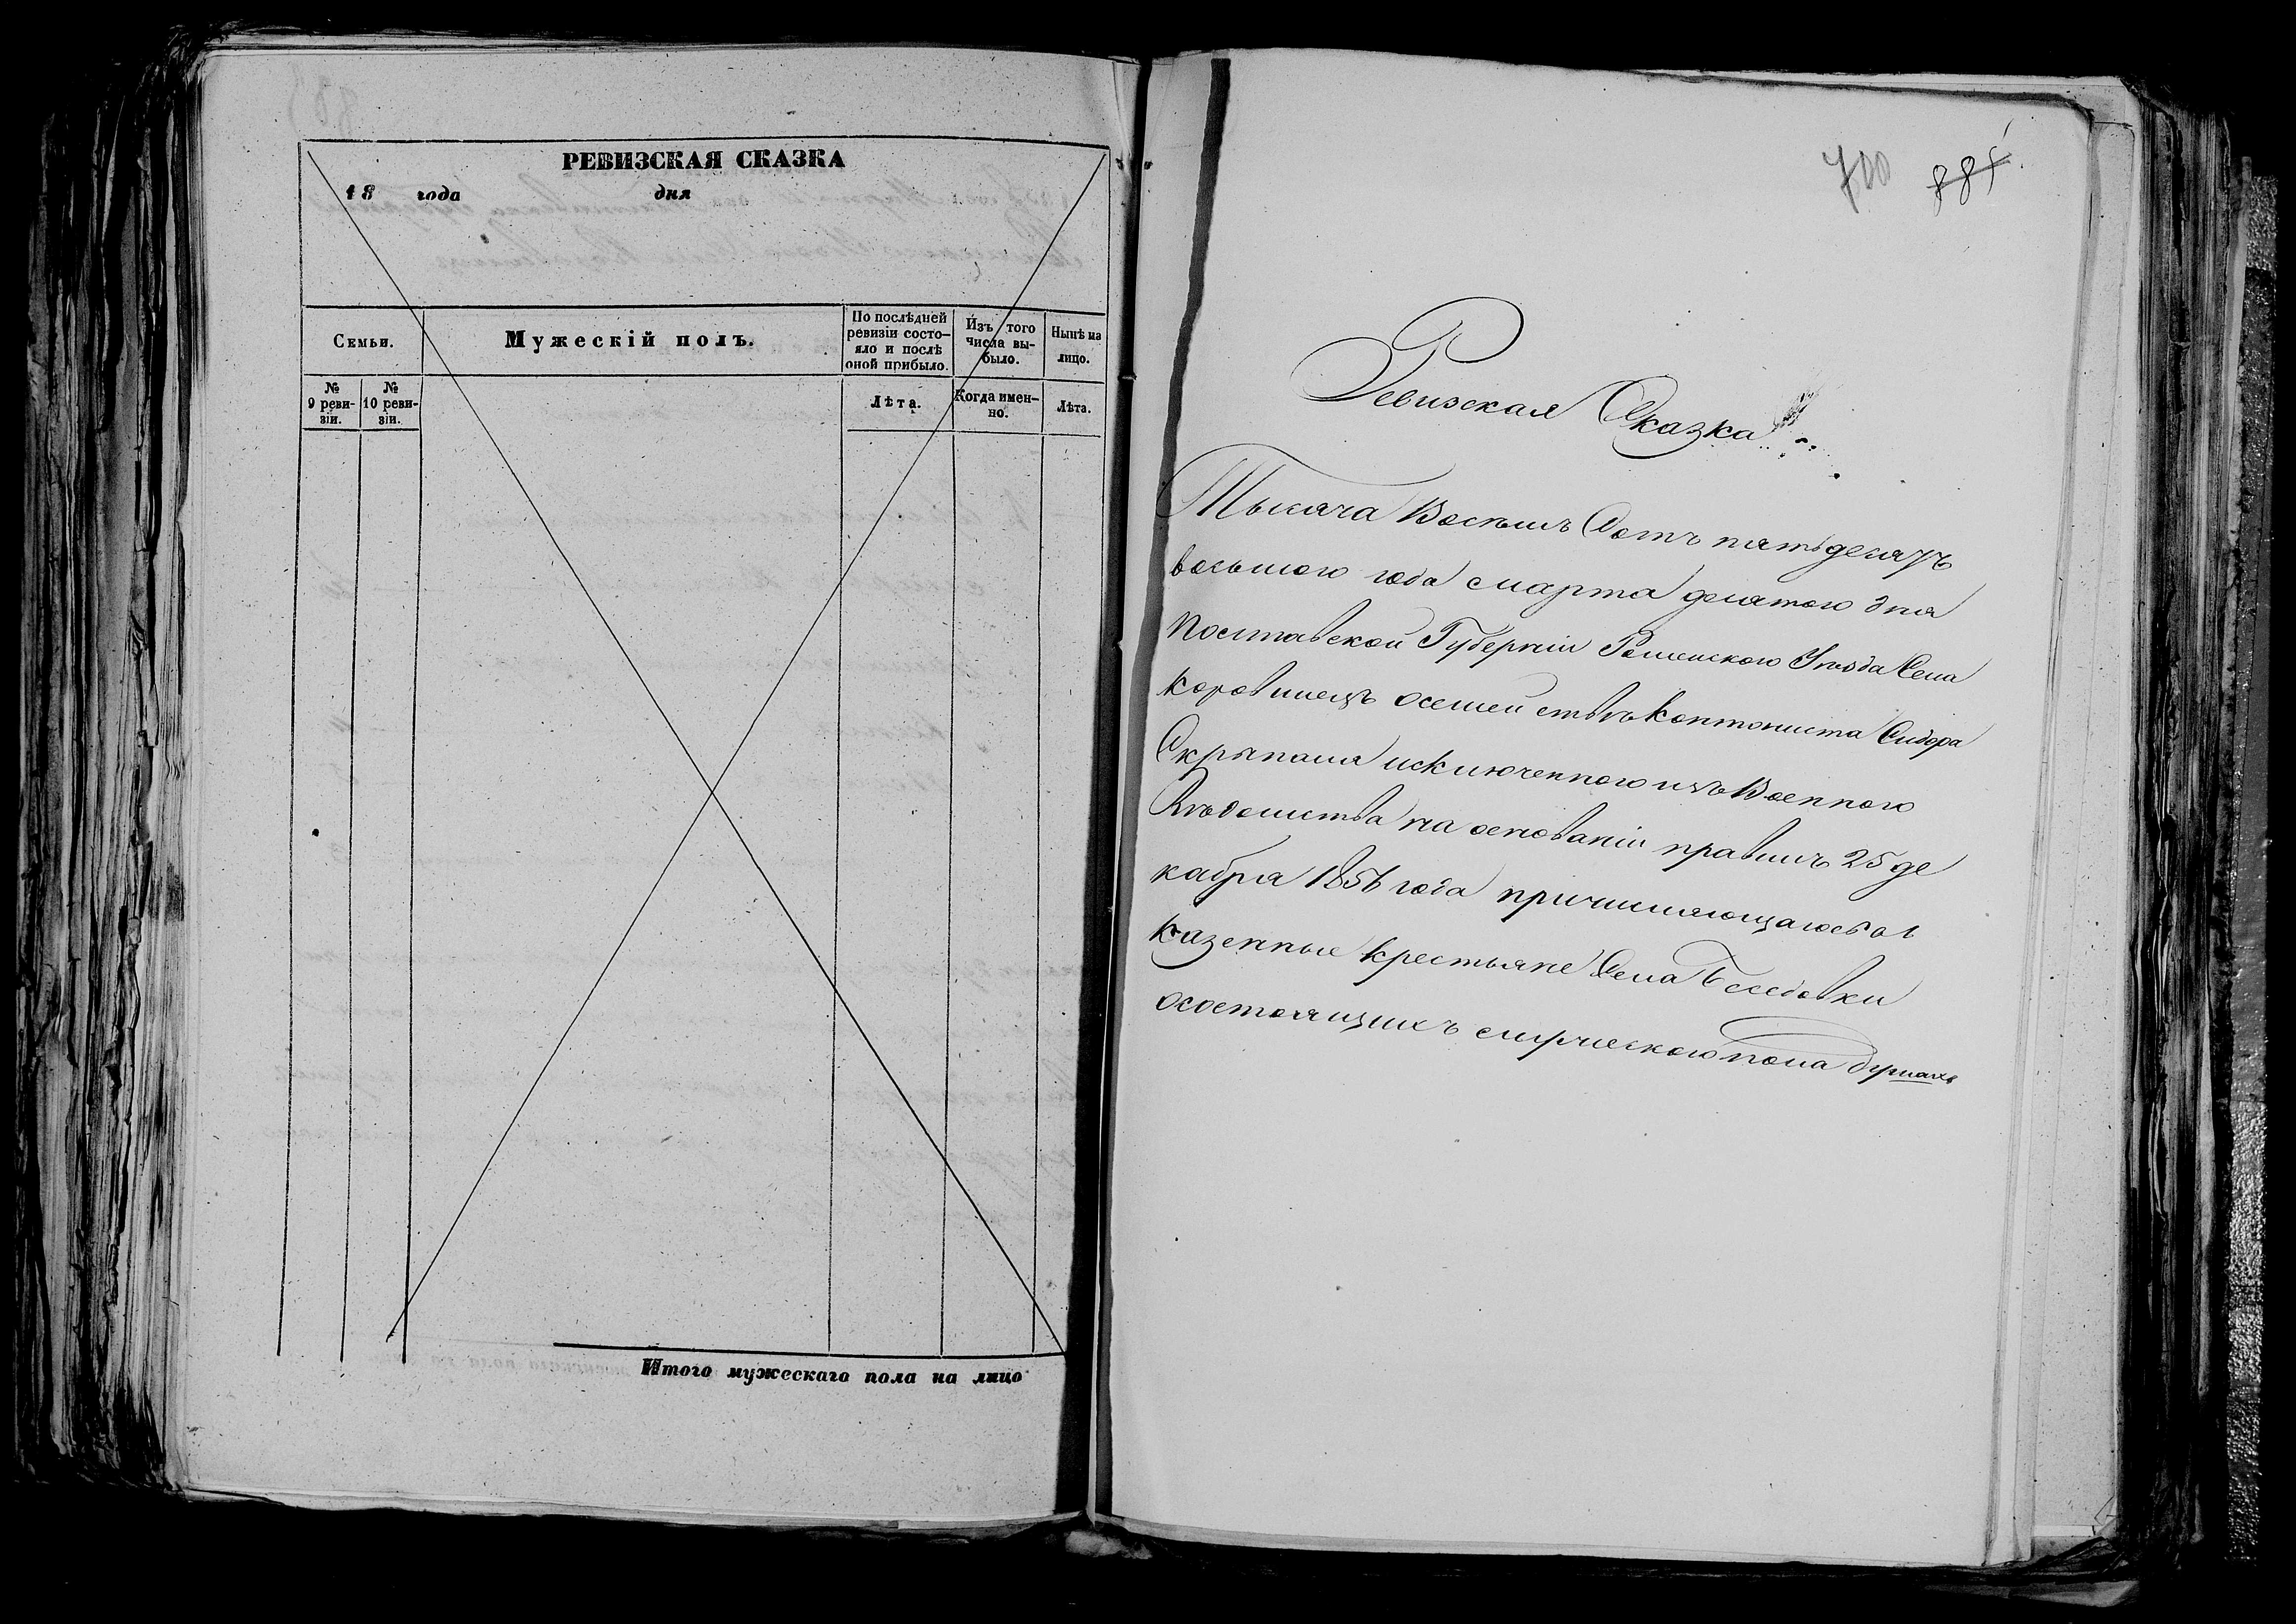 РЕВИЗСКАЯ СКАЗКА
18 года дня
Семьи.
Мужескій полъ.
По послѣдней ревизіи состо-
яло и послѣ
оной прибыло.
Изъ того
числа вы-
было.
Нынѣ на
лицо.
№
9 реви-
зіи.
№
10 реви-
зіи.
Лѣта.
Когда имен-
но.
Лѣта.
Итого мужескаго пола на лицо
700 885
Ревизская Сказка
Тысяча Восемь Сотъ пятьдесятъ
восьмого года марта девятого дня
Полтавской Губерніи Роменского Уѣзда Села
Коровинецъ осемействѣ Кантониста Сидора
исключенного изъ Военного
Вѣдомства на основаніи правилъ 25 де
кабря 1856 года причисляющагося въ
казенные крестьяне Села Беседовки
осостоящихъ мужескогопола душахъ